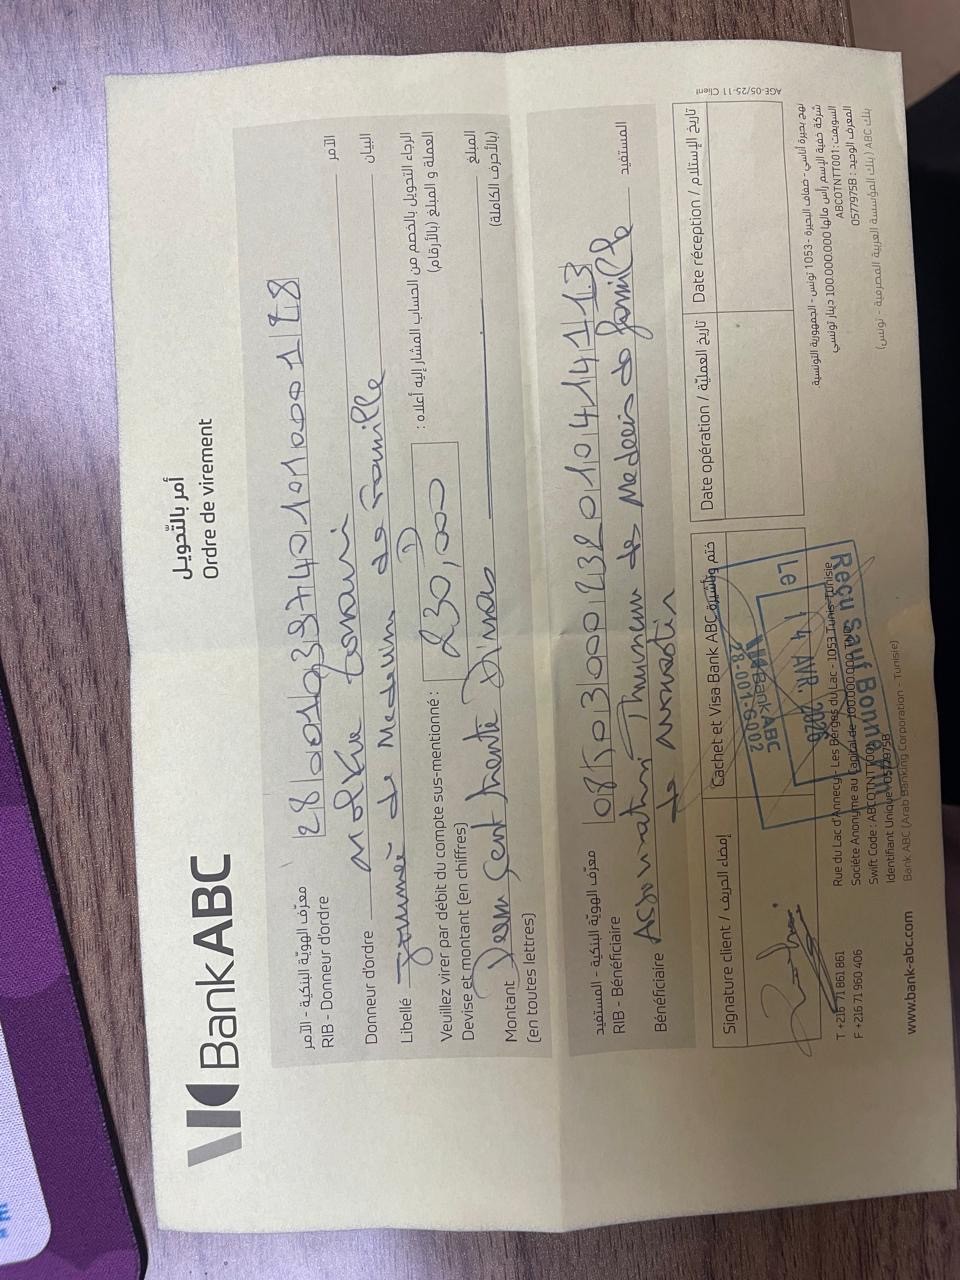 Bank ABC
أمر بالتّحويل
Ordre de virement
معرّف الهويّة البنكية - الآمر
RIB - Donneur d'ordre
الآمر
Donneur d'ordre
البيان
Libellé Journée de Medecine de Famille
الرجاء التحويل بالخصم من الحساب المشار إليه أعلاه :
Veuillez virer par débit du compte sus-mentionné :
العملة و المبلغ (بالأرقام)
Devise et montant (en chiffres) 230,000
المبلغ
Montant Deux Cent trente Dinars
(بالأحرف الكاملة)
(en toutes lettres)
معرّف الهويّة البنكية - المستفيد
RIB - Bénéficiaire
المستفيد
Bénéficiaire Association des Medecins de famille
de
Signature client / إمضاء الحريف
Cachet et Visa Bank ABC ختم وتأشيرة
Date opération / تاريخ العمليّة
Date réception / تاريخ الإستلام
Bank ABC
28-001-G002
Le 14 AVR. 2026
Reçu Sauf Bonne Fin
AGE-05/25-11 Client
T +216 71 861 861
F +216 71 960 406
www.bank-abc.com
Rue du Lac d'Annecy - Les Berges du Lac - 1053 Tunis-Tunisie
Société Anonyme au Capital de 100.000.000 TND
Swift Code : ABCOTNTT001
Identifiant Unique : 0577975B
Bank ABC (Arab Banking Corporation - Tunisie)
نهج بحيرة أناسي - ضفاف البحيرة - 1053 تونس - الجمهورية التونسية
شركة خفية الإسم رأس مالها 100.000.000 دينار تونسي
السويفت : ABCOTNTT001
المعرف الوحيد : 0577975B
بنك ABC (بنك المؤسسة العربية المصرفية - تونس)